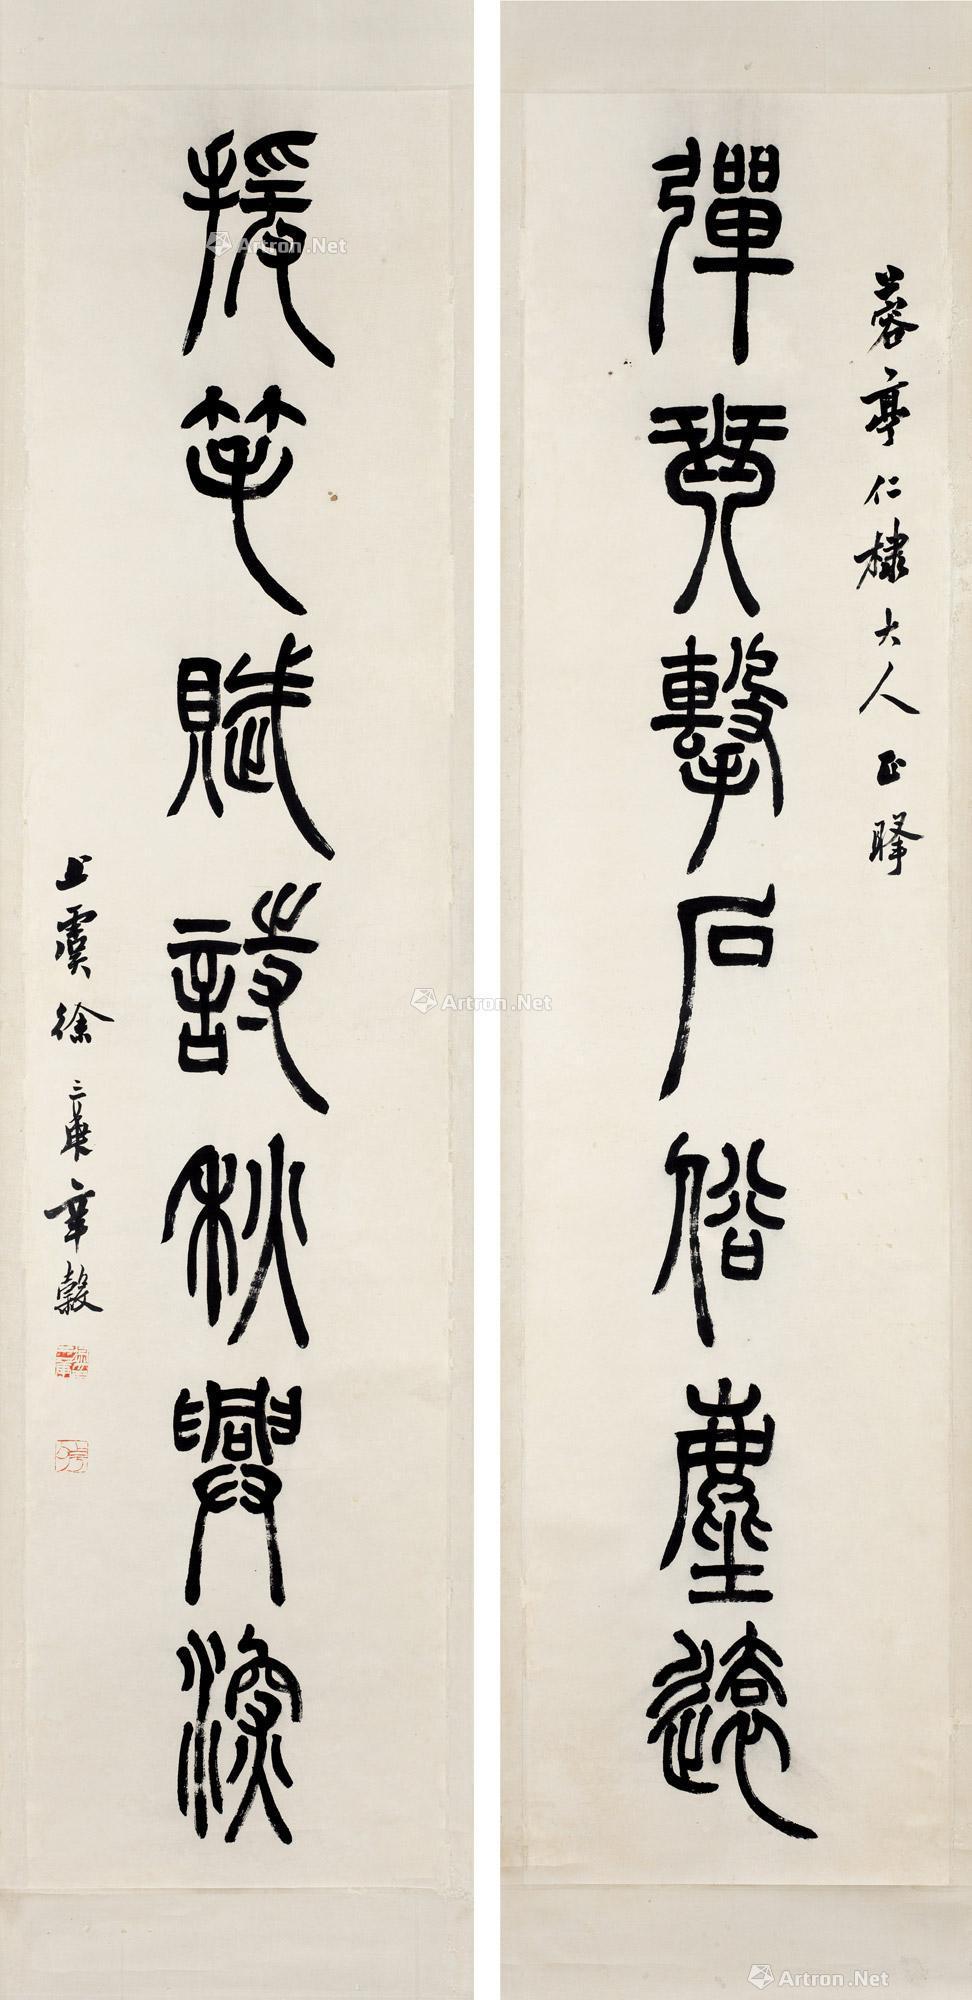 蓉亭仁棣大人正
彈琴擊石俗塵遠
援笔賦詩秋興深
上虞徐三庚辛穀
Artron.Net
Artron.Net
Artron.Net